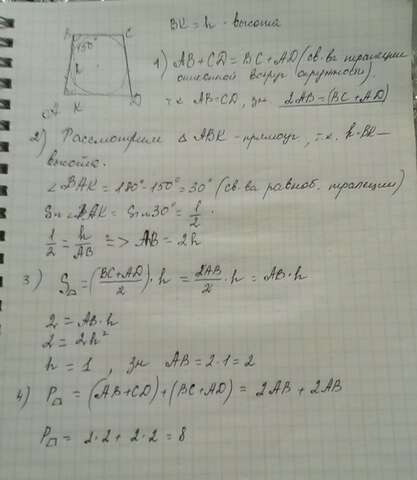 BK = h - высота
B C
150°
h
A K D
1) AB + CD = BC + AD (св-ва трапеции
описанной вокруг окружности).
т.к AB = CD, зн 2AB = (BC + AD)
2) Рассмотрим Δ ABK - прямоуг, т.к. h - BK -
высота.
∠BAK = 180° - 150° = 30° (св-ва равноб. трапеции)
Sin ∠BAK = Sin 30° = 1/2.
1/2 = h/AB => AB = 2h
3) S = ((BC + AD)/2) · h = 2AB/2 · h = AB · h
2 = AB · h
2 = 2h²
h = 1, зн AB = 2 · 1 = 2
4) P = (AB + CD) + (BC + AD) = 2AB + 2AB
P = 2 · 2 + 2 · 2 = 8